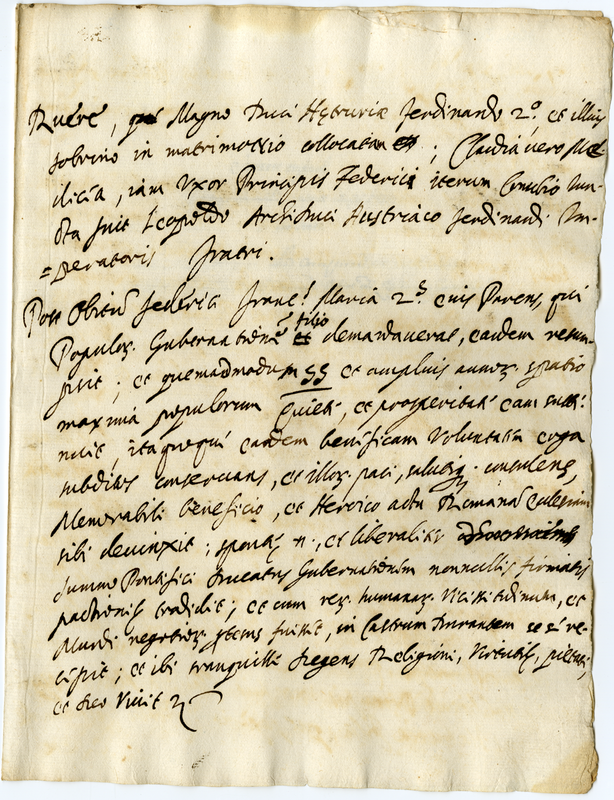 Ruere, quae Magno Duci Hetruriae Ferdinando 2.º et illius
sobrino in matrimonio collocata ; Claudia vero Me-
dicia, iam Uxor Principis Federici iterum Conubio iun-
cta fuit Leopoldo Archiduci Austriaco Ferdinandi Im-
=peratoris fratri.
Post Obitũ federici Maria 2.s eius Parens, qui
Populoꝝ. Gubernationẽ filio demandaverat, eandem resum-
psit; et quemadmodum 55 et amplius annoꝝ. spatio
maxima populorum Quiete, et prosperitate eam
nuit, itaque eandem beneficam Voluntatem erga
subditos conservans, et illoꝝ. paci, consulens,
Memorabili beneficio, et Heroico actu Romanã Ecclesiam
sibi devinxit; et liberaliter
summo Pontifici Ducatus Gubernationem nonnullis firmatis
pactionis tradidit; et cum reꝝ. humanaꝝ. Vicissitudinum, et
Mundi in Castrum Durantem se re-
cepit; et ibi tranquille degens Religioni, Virtuti, pietati,
et Deo Vixit